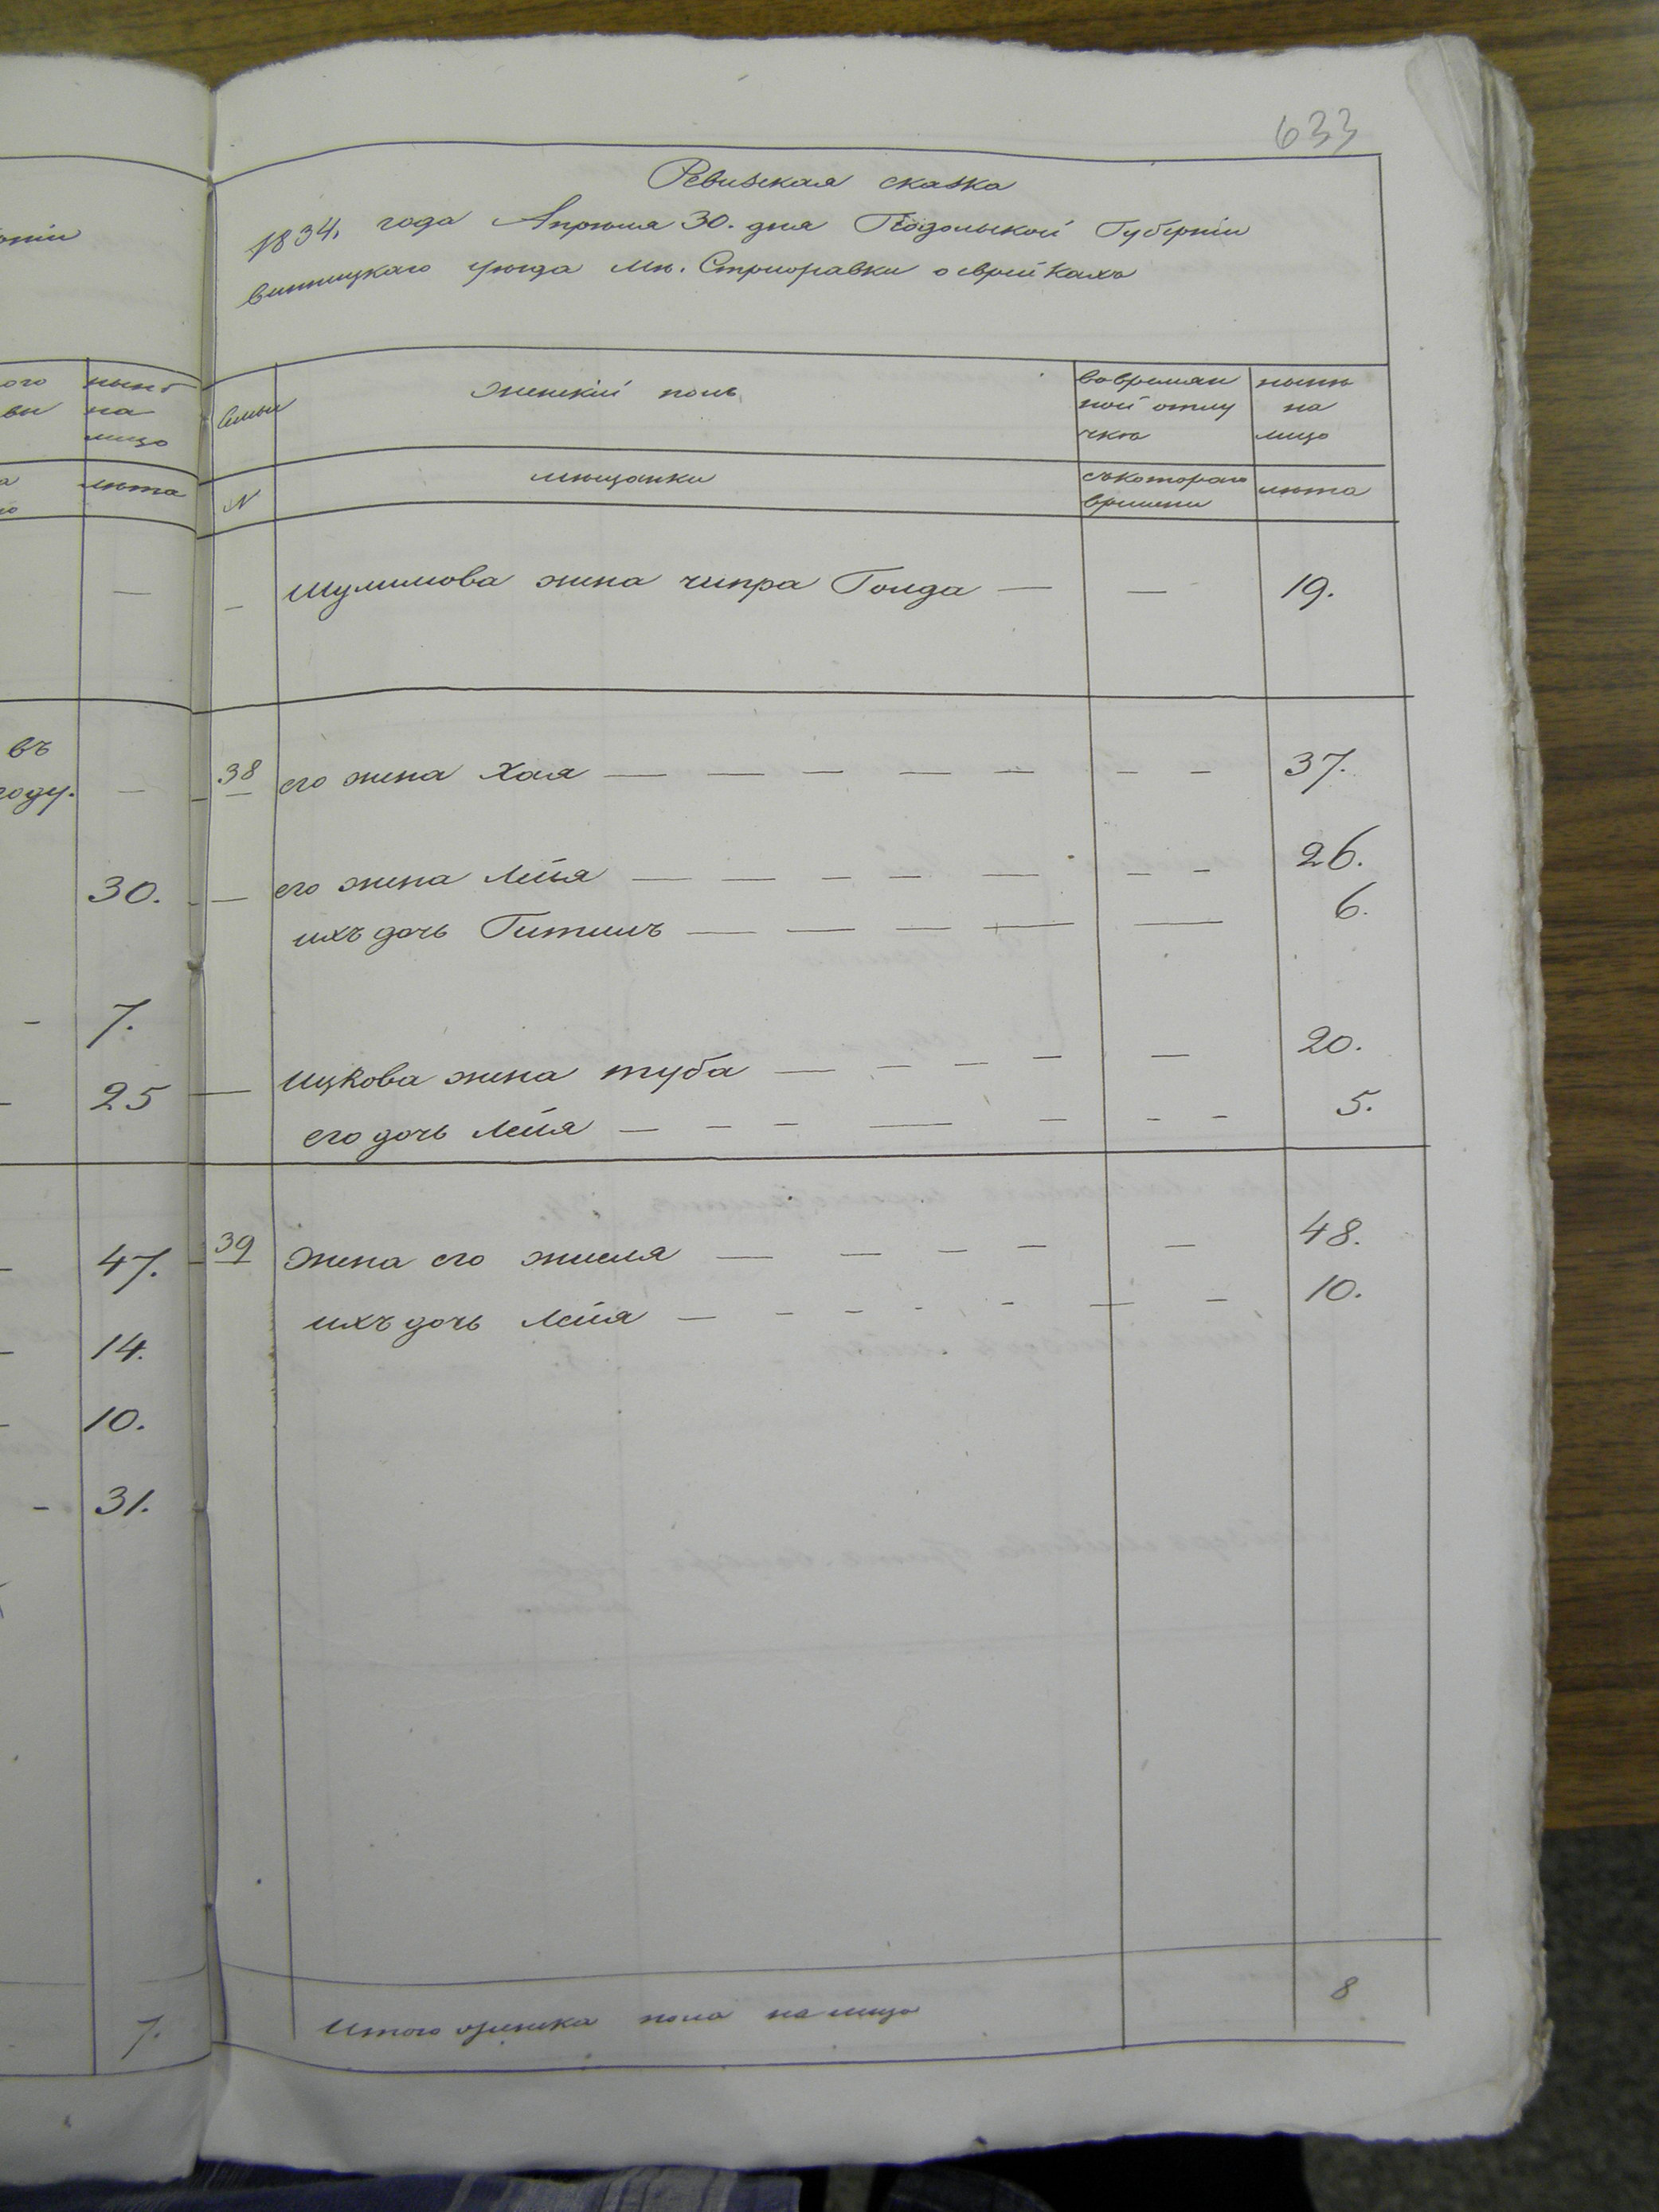 633
Ревизская сказка
1834. года Апреля 30. дня Подольской Губерніи
винницкаго уезда мѣ. Стрижавки о еврейкахъ
ого
ви
нынѣ
на
лицо
лѣта
семьи
N
женскій полъ
мѣщанки
вовремян
ной отлу
чкѣ
съкотораго
времени
нынѣ
на
лицо
лѣта
Шулимова жена чипра Голда — — 19.
въ
году.
38 его жена Хая — 37.
30.
его жена Лейя — 26.
ихъ дочь Гитшль — 6.
7.
25
Ицкова жена туба — 20.
его дочь Лейя — 5.
47.
39 Жена его жисля — 48.
ихъ дочь Лейя — 10.
14.
10.
31.
7.
Итого женска пола на лицо 8